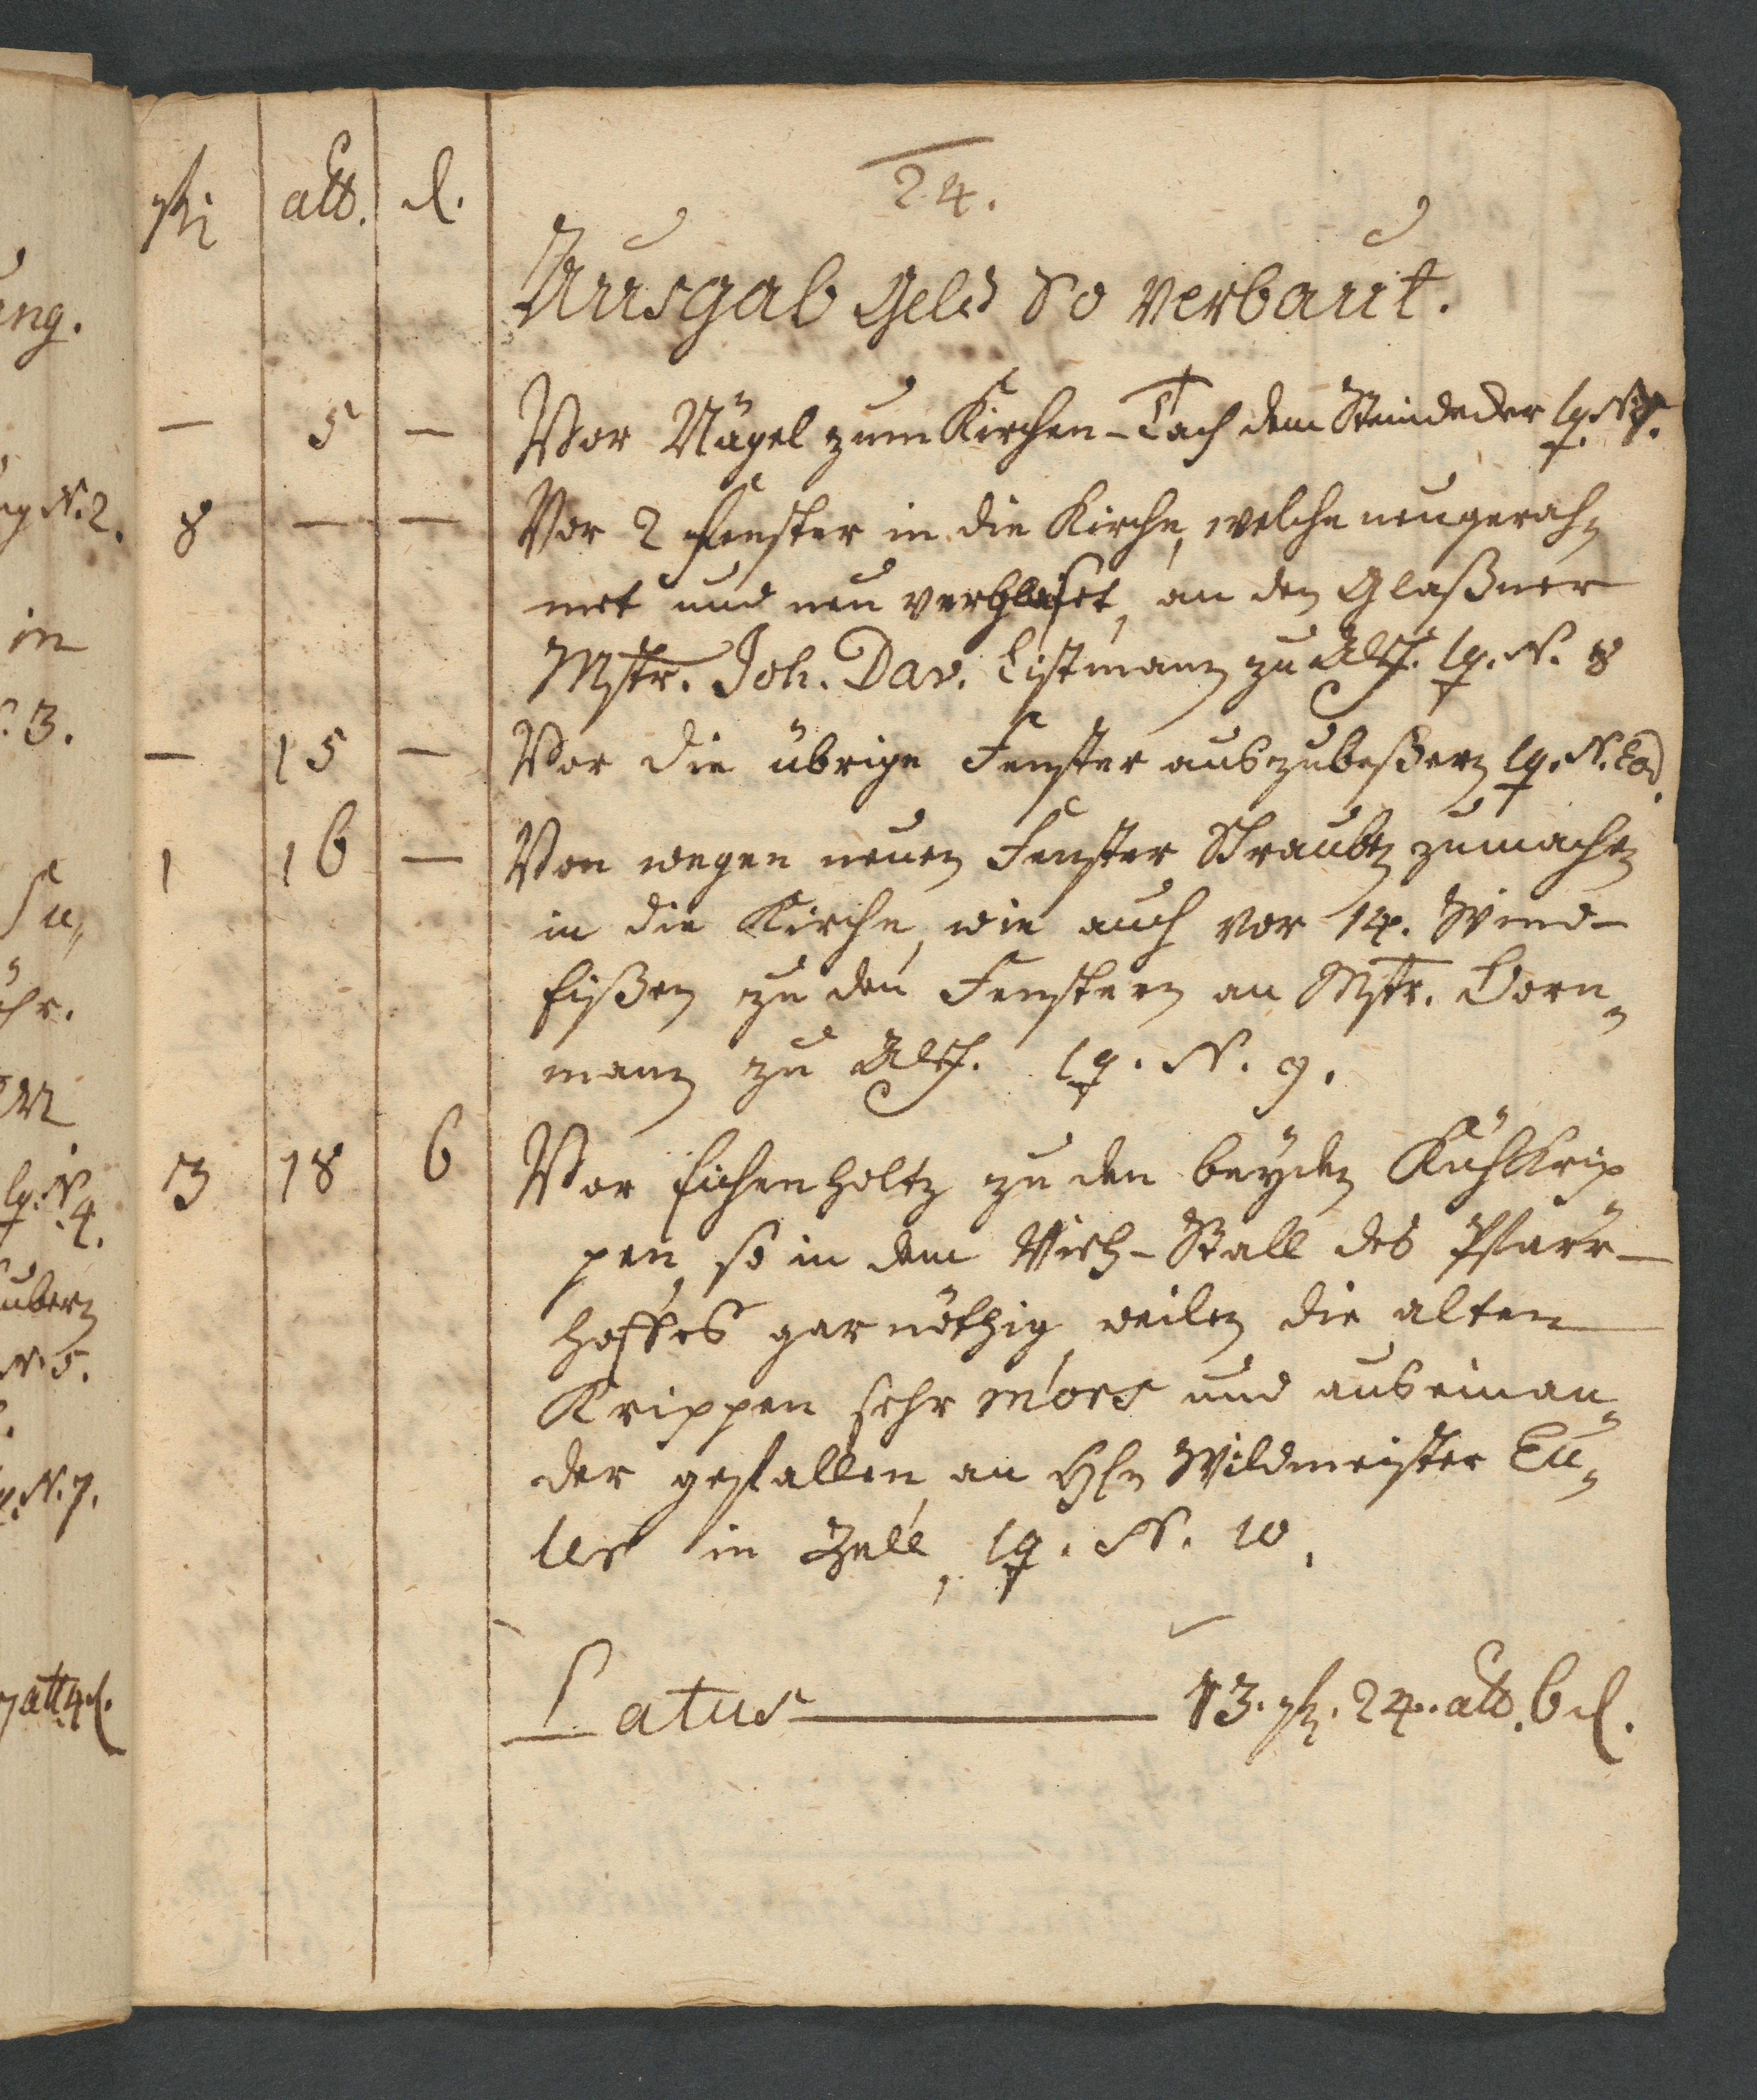 rthl alb. d.
24.
Ausgab Geld So verbaut.
— 5 — Vor Nägel zum Kirchen-Tach dem Steindecker lq. N. 7.
8 — — Vor 2 Fenster in die Kirche, welche neu gerah=
met und neu verglaset, an den Glaßner
Mstr. Joh. Dav. Listmann zu Alsf. lq. N. 8
— 15 — Vor die übrige Fenster auszubeßern lq. N. Eod.
1 16 — Von wegen neuen Fenster Schrauben zu machen
in die Kirche, wie auch vor 14. Wind-
Eißen zu den Fenstern an Mstr. Dorn=
mann zu Alsf. lq. N. 9.
3 18 6 Vor Eichenholtz zu den beyden Kühkrip=
pen, so in dem Vieh-Stall des Pfarr-
hoffes gar nöthig, weilen die alten
Krippen sehr mors und auseinan=
der gefallen, an Hln Wildmeister Eu=
ler in Zell, lq. N. 10.
Latus — 13. rthl. 24. alb. 6 d.
eng.
N. 2.
in
3.
lq. N. 4.
N. 5.
N. 7.
alb 4 d.